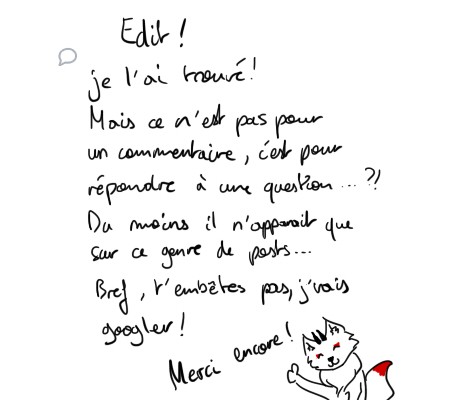 Edit !
je l'ai trouvé !
Mais ce n'est pas pour
un commentaire, c'est pour
répondre à une question ... ?!
Du moins il n'apparait que
sur ce genre de posts...
Bref, t'embêtes pas, j'vais
googler !
Merci encore !